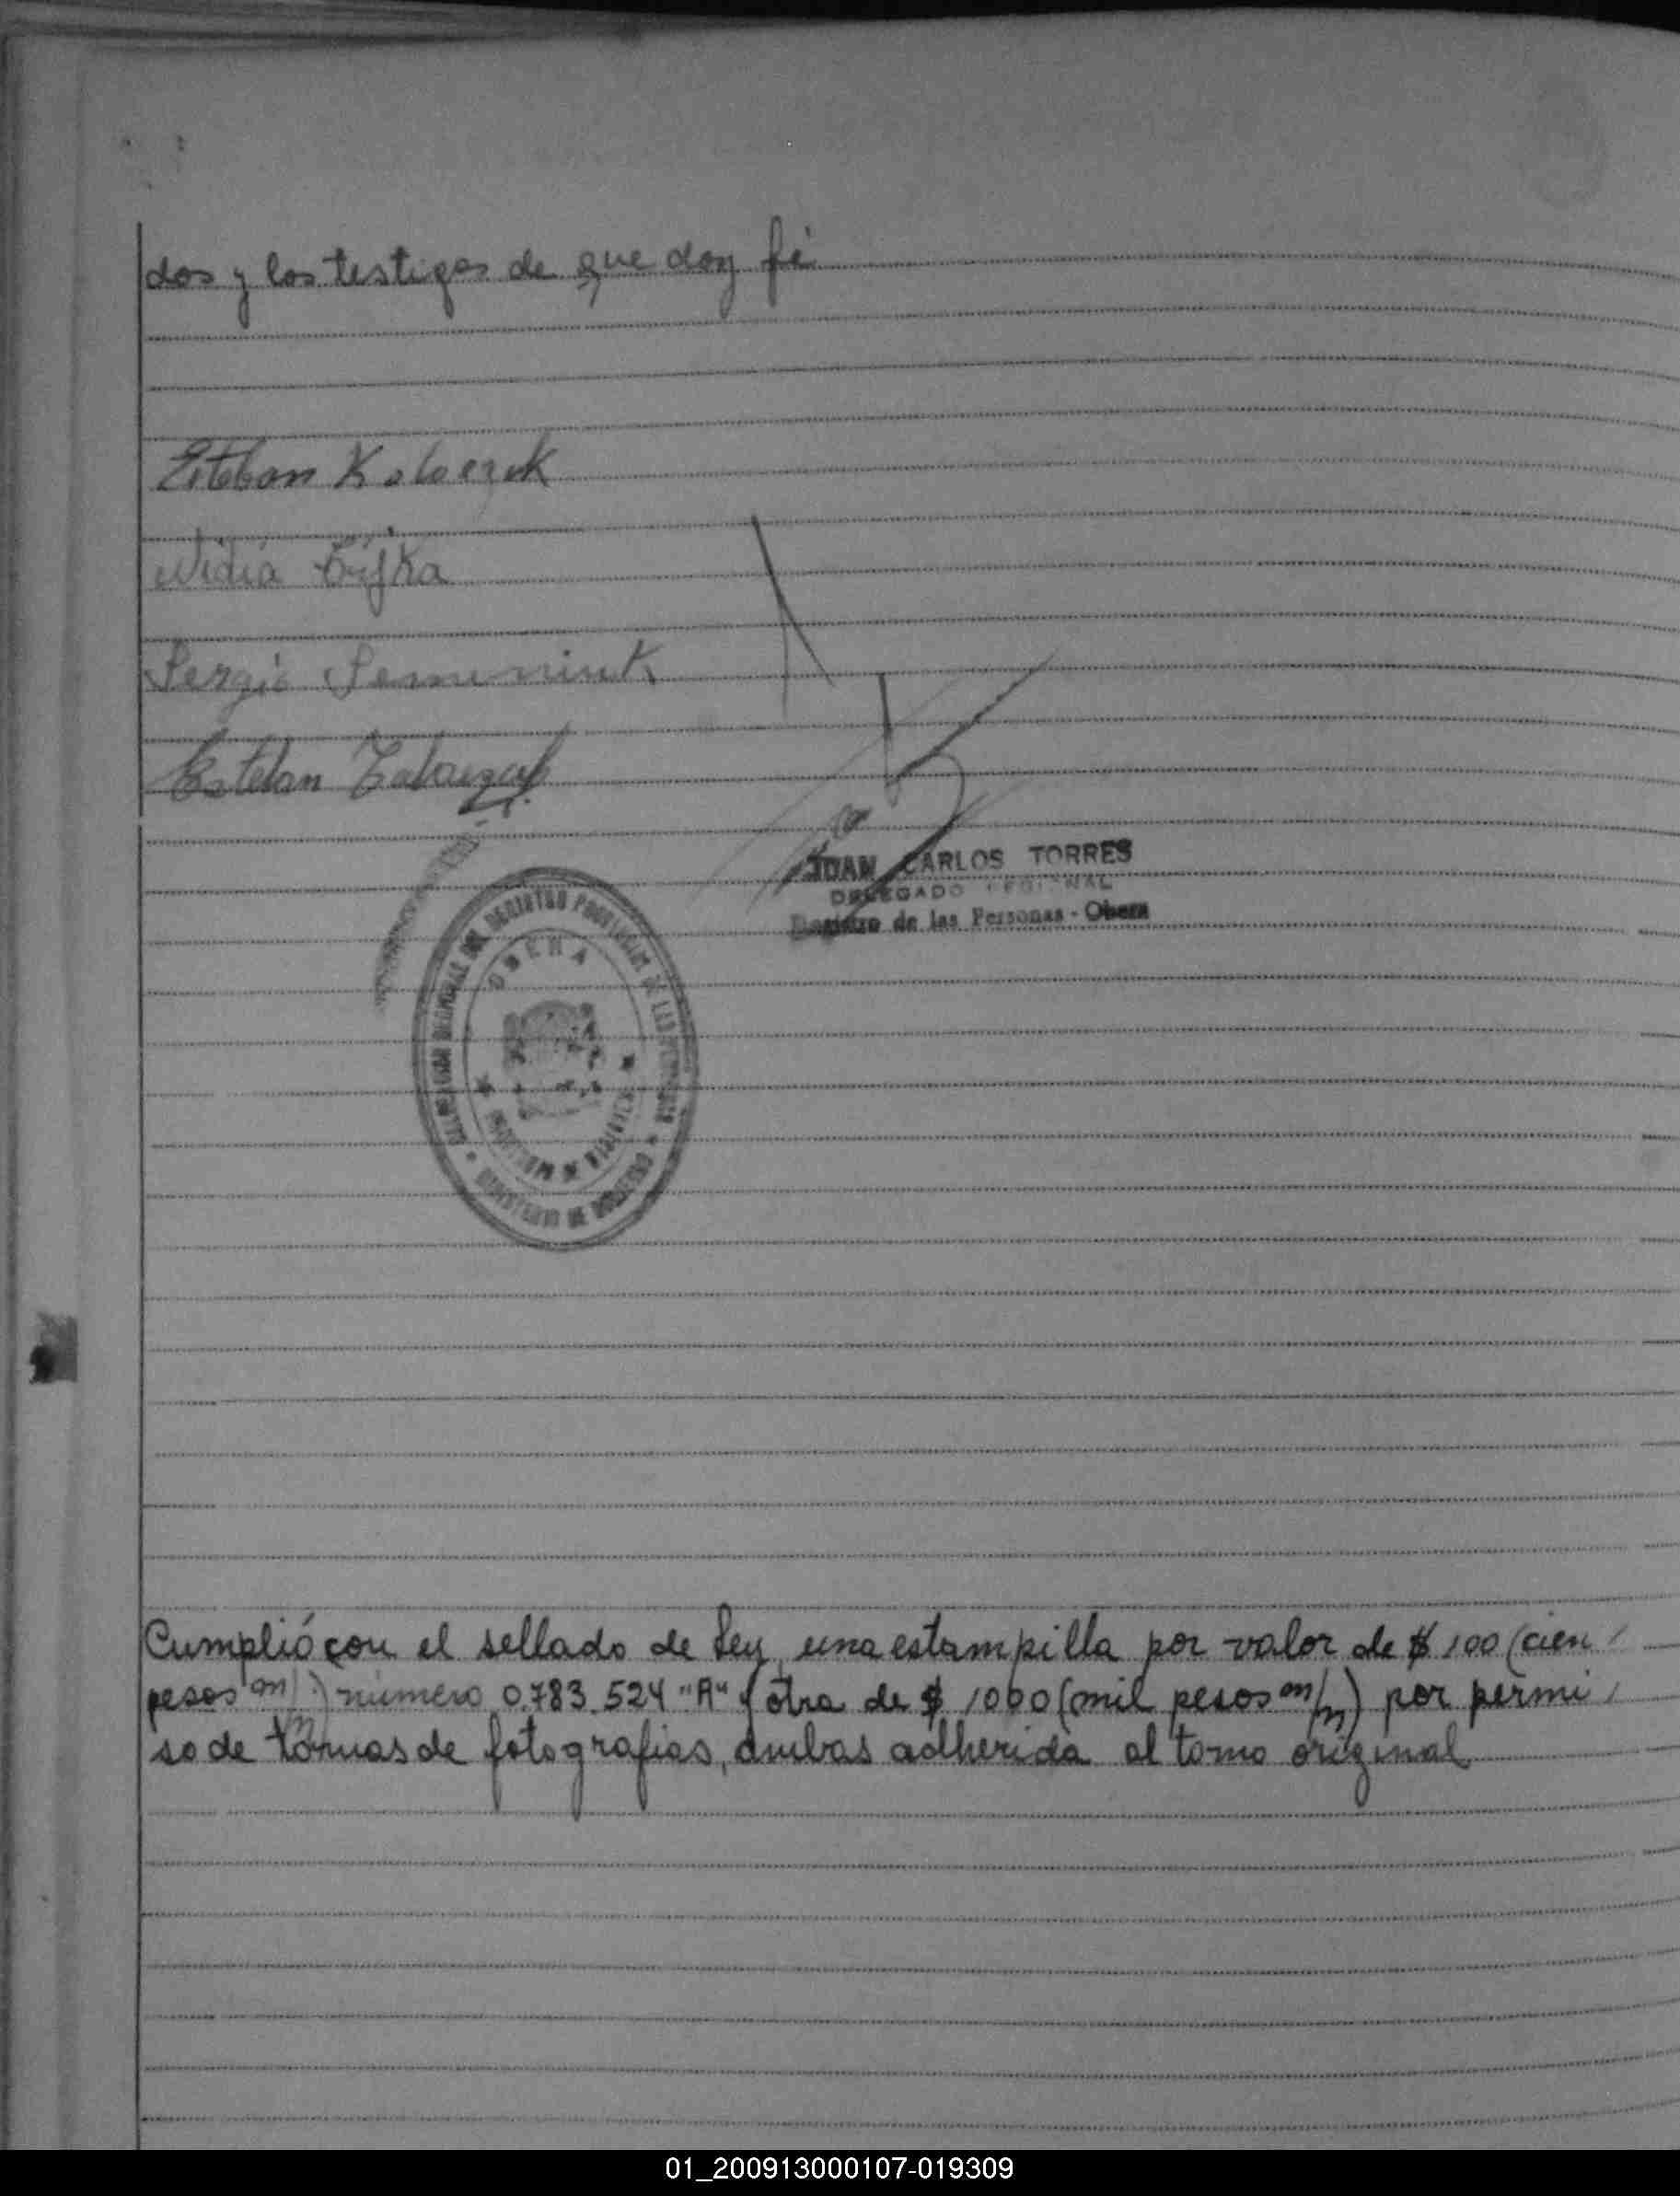 dos y los testigos de que doy fé
Esteban
Nidia
Sergio
Esteban
JUAN CARLOS TORRES
DELEGADO REGIONAL
Registro de las Personas - Obera
OBERA
MISIONES
MINISTERIO DE GOBIERNO
Cumplió con el sellado de Ley, una estampilla por valor de $ 100 (cien /
pesos m/n) número 0.783.524 "A" y otra de $ 1000 (mil pesos m/n) por permi /
so de tomas de fotografias, ambas adherida al tomo original
01_200913000107-019309